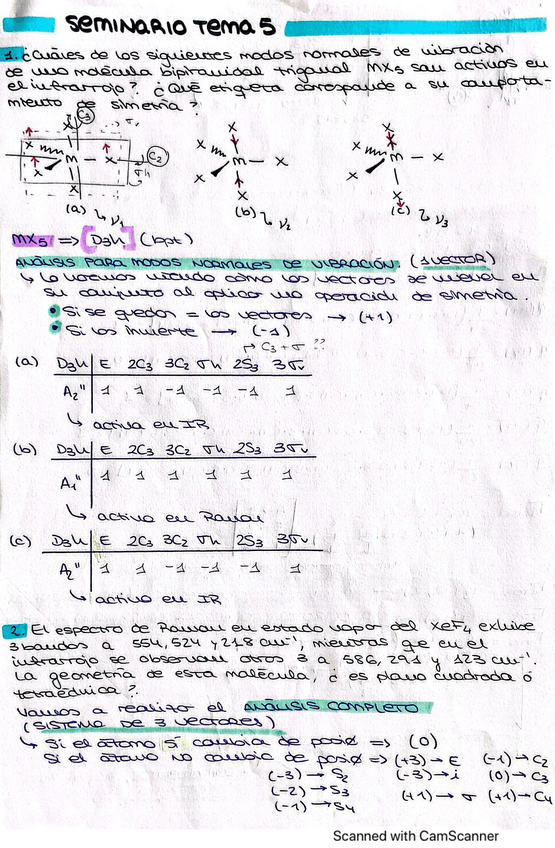 SEMINARIO TEMA 5
1. ¿Cuáles de los siguientes modos normales de vibración
de una molécula bipiramidal trigonal MX5 son activos en
el infrarrojo? ¿Qué etiqueta corresponde a su comporta-
miento de simetría?
C3
σv
X
X
X
M
X
C2
σh
X
(a) ↳ ν1
X
X
X
M
X
X
(b) ↳ ν2
X
X
X
M
X
X
(c) ↳ ν3
MX5 => [D3h] (bpt)
ANÁLISIS PARA MODOS NORMALES DE VIBRACIÓN. (1 VECTOR)
↳ Lo vamos viendo cómo los vectores se mueven en
su conjunto al aplicar una operación de simetría.
Si se quedan = los vectores → (+1)
Si los invierte → (-1)
↱ C3 + σ ??
(a) D3h E 2C3 3C2 σh 2S3 3σv
A2" 1 1 -1 -1 -1 1
↳ activa en IR
(b) D3h E 2C3 3C2 σh 2S3 3σv
A1" 1 1 1 1 1 1
↳ activo en Raman
(c) D3h E 2C3 3C2 σh 2S3 3σv
A2" 1 1 -1 -1 -1 1
↳ activo en IR
2. El espectro de Raman en estado vapor del XeF4 exhibe
3 bandas a 554, 524 y 218 cm⁻¹, mientras que en el
infrarrojo se observan otros 3 a 586, 291 y 123 cm⁻¹.
La geometría de esta molécula, ¿es plano cuadrada o
tetraédrica?
Vamos a realizar el ANÁLISIS COMPLETO
(SISTEMA DE 3 VECTORES)
↳ Si el átomo SÍ cambia de posi⊕ => (0)
Si el átomo no cambia de posi⊕ => (+3) → E (-1) → C2
(-3) → S2 (-3) → i (0) → C3
(-2) → S3 (+1) → σ (+1) → C4
(-1) → S4
Scanned with CamScanner